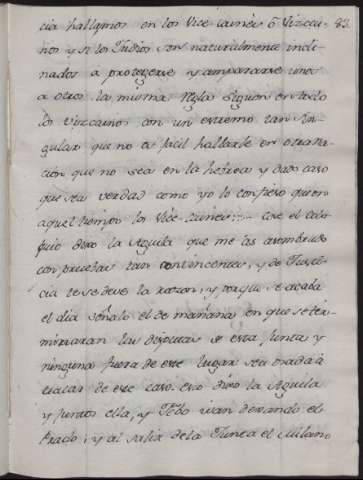 cia hallamos en los Vice-caines ô Vizcai- 83.
nos y si los Judios son naturalmente incli-
nados a protegerse y ampararse unos
a otros la misma regla siguen en todo
los vizcainos con un extremo tan sin-
gular que no es facil hallarle en otra na-
cion que no sea en la hebrea y dado caso
que sea verdad como yo lo confieso que en
aquel tiempo los Vice-caines::::- Cese el colo-
quio dixo la Aguila que me as asombrado
con pruebas tan convincentes, y de Justi-
cia te se deve la razon; y pues se acaba
el dia señalo el de mañana en que se ter-
minaran las disputas de esta Junta y
ninguna fuera de este lugar sea osada à
tratar de este caso. eso dixo la Aguila
y juntos ella, y Febo ivan dexando el
Prado; y al salir de la Junta el Milano